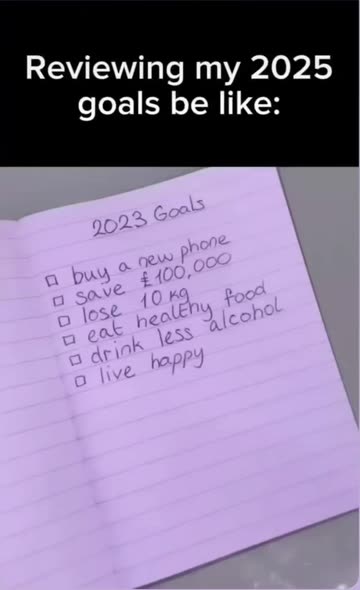 Reviewing my 2025
goals be like:
2023 Goals
□ buy a new phone
□ save £100,000
□ lose 10 kg
□ eat healthy food
□ drink less alcohol
□ live happy